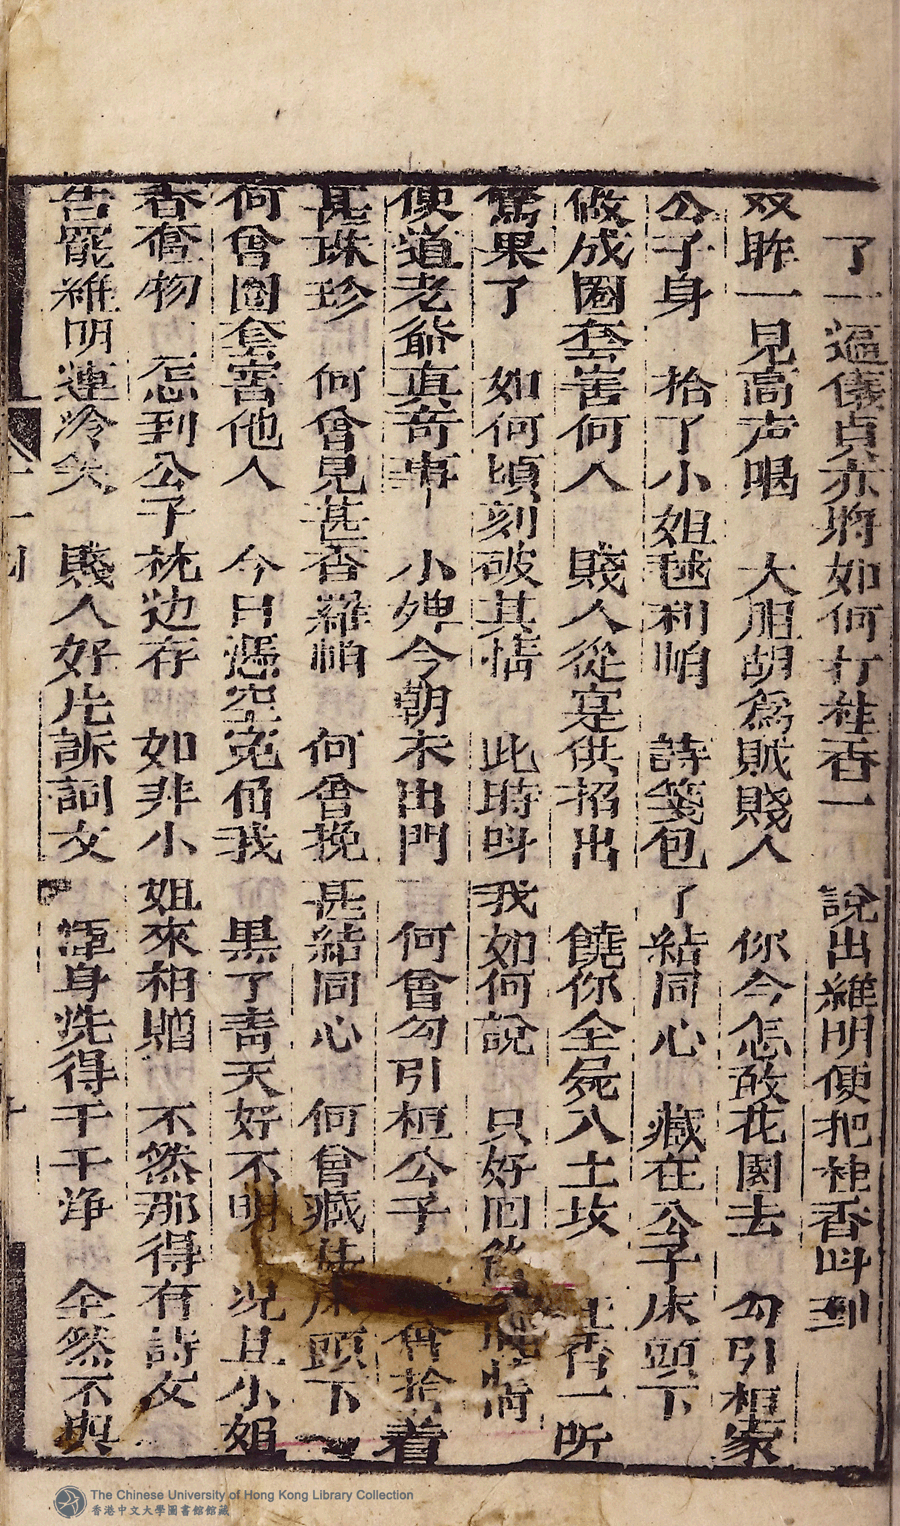 了一遍儀貞亦將如何打桂香一 說出維明便把桂香呌到
双眸一見高声喝 大胆胡為賊賤人 你今怎敢花園去 勾引桓家
公子身 拾了小姐毬利帕 詩箋包了結同心 藏在公子床頭下
做成圈套害何人 賤人從寔供招出 饒你全屍入土坟 香一所
驚果了 如何頃刻破其情 此時呌我如何說 只好回 情
便道老爺真奇事 小婢今朝未出門 何曾勾引桓公子 曾拾着
甚珠珍 何曾見甚香羅帕 何曾挽甚結同心 何曾藏 床頭下
何曾圈套害他人 今日憑空冤屈我 黒了青天好不明 况且小姐
香奩物 怎到公子枕边存 如非小姐來相贈 不然那得有詩文
告罷維明連冷笑 賤人好片訴詞文 渾身洗得干干净 全然不
The Chinese University of Hong Kong Library Collection
香港中文大學圖書館館藏